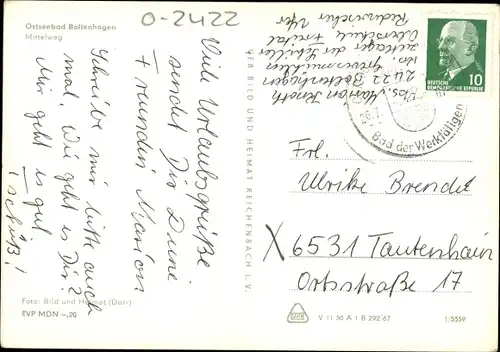 Ostseebad Boltenhagen
Mittelweg
O-2422
Viele Urlaubsgrüße
sendet Dir Deine
Freundin Marion
Schreibe mir bitte auch
mal. Wie geht es Dir?
Mir geht es gut
Tschüß!
Abs. Marion
2422 Boltenhagen
Krs. Grevesmühlen
Zeltlager der Schiller
Oberschule Freital
VEB BILD UND HEIMAT REICHENBACH I. V.
10
DEUTSCHE
DEMOKRATISCHE REPUBLIK
Bad der Werktätigen
Frl.
Ulrike Brendel
X 6531 Tautenhain
Ortsstraße 17
Foto: Bild und Heimat (Darr)
EVP MDN –,20
V 11 50 A 1 B 292/67
1/5559